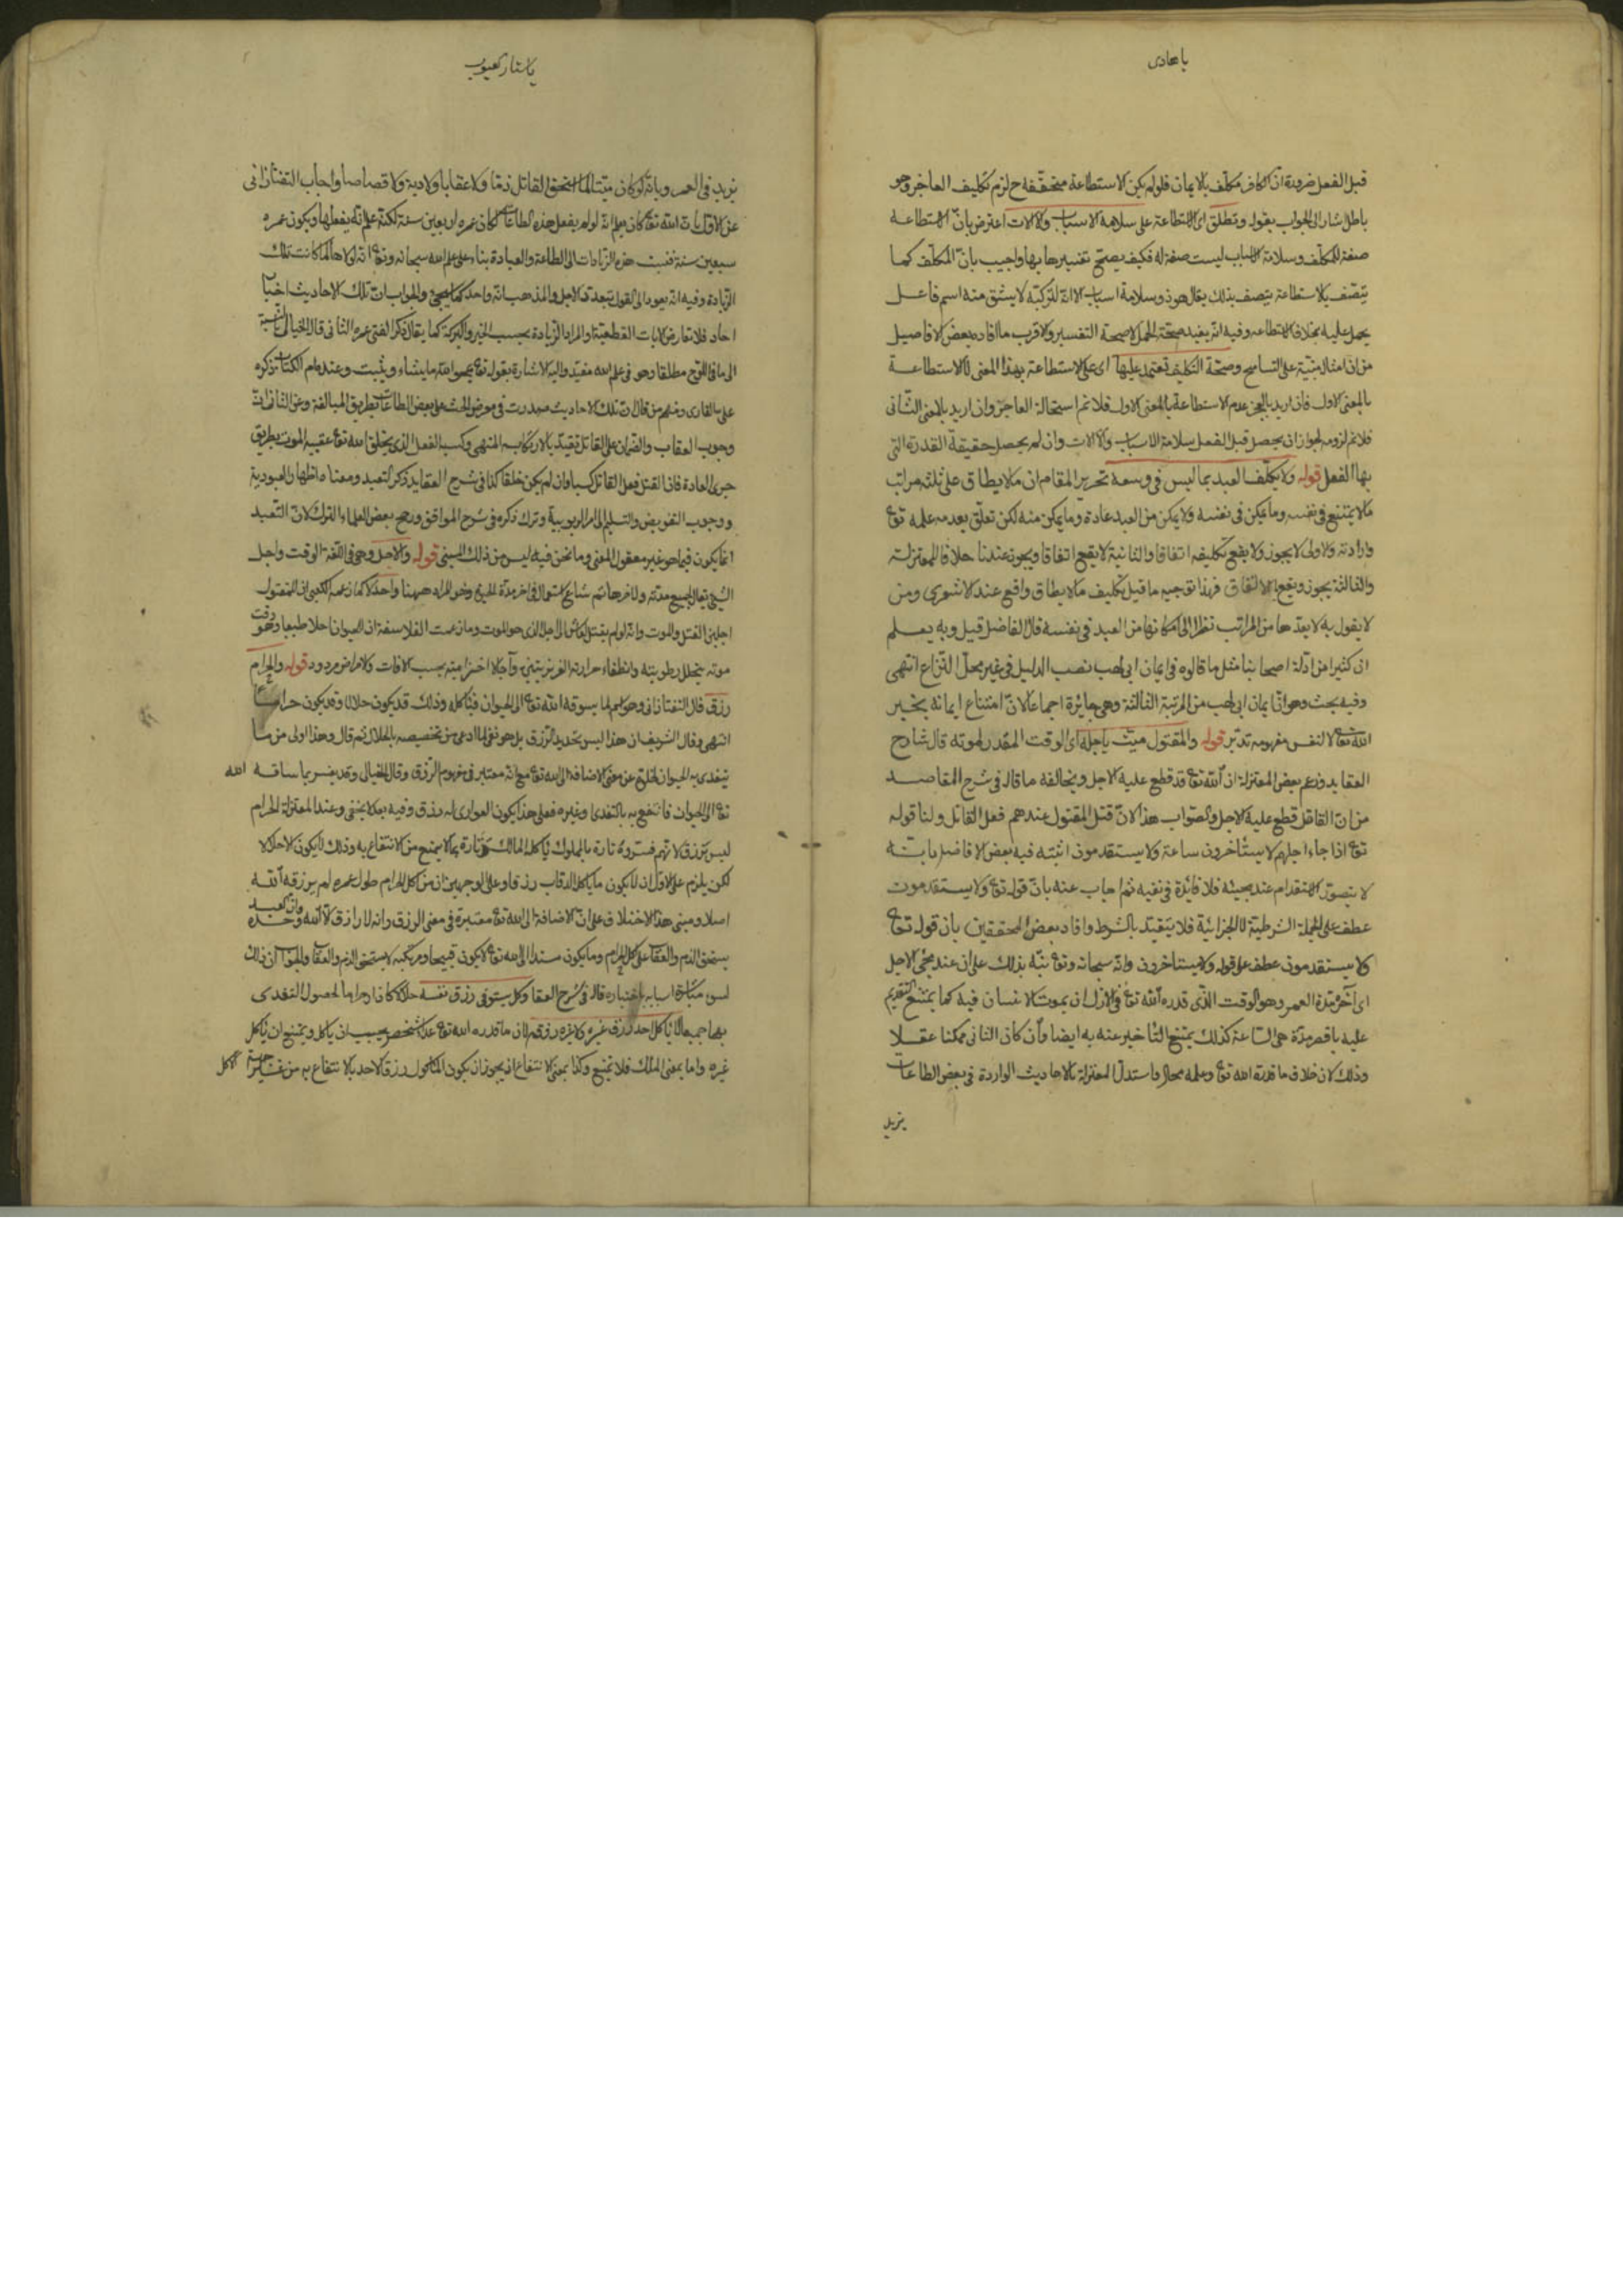 يا هادى
قبل الفعل ضرورة ان الكافر مكلّف بالايمان فلو لم يكن الاستطاعة متحققة ح لزم تكليف العاجز وهو
باطل اشار الى الجواب بقوله وتطلق اى الاستطاعة على سلامة الاسباب والالات اعترض بانّ الاستطاعة
صفة للمكلّف وسلامة الاسباب ليست صفة له فكيف يصحّ تفسيرها بها واجيب بانّ المكلّف كما
يتّصف بالاستطاعة يتصف بذلك يقال هو ذو سلامة اسباب الا انّه لتركّبه لا يشتق منه اسم فاعل
يحمل عليه بخلاف الاستطاعة وفيه انّه يفيد صحّة الحمل لا صحة التفسير والاقرب ما افاده بعض الافاضيل
من انّ امثال مبنيّة على التسامح وصحّة التكليف تعتمد عليها اى على الاستطاعة بهذا المعنى لا الاستطاعة
بالمعنى الاول فان اريد بالعجز عدم الاستطاعة بالمعنى الاول فلا نم استحالة العاجز وان اريد بالمعنى الثّانى
فلا نم لزومه لجواز ان يحصل قبل الفعل سلامة الاسباب والالات وان لم يحصل حقيقة القدرة التى
بها الفعل قوله ولا يكلّف العبد بما ليس فى وسعه تحرير المقام ان ما لا يطاق على ثلثة مراتب
ما لا يمتنع فى نفسه وما يمكن فى نفسه ولا يمكن من العبد عادة وما يمكن منه لكن تعلّق بعدمه علمه تع
وارادته والاولى لا يجوز ولا يقع تكليفه اتفاقا والثانية لا يقع اتفاقا ويجوز عندنا خلافا للمعتزلة
والثالثة يجوز ويقع بالاتفاق فهذا توجيه ما قيل تكليف ما لا يطاق واقع عند الاشعرى ومن
لا يقول به لا يعدّها من المراتب نظرا الى امكانها من العبد فى نفسه قال الفاضل قيل وبه يعلم
ان كثيرا من ادلة اصحابنا مثل ما قالوه فى ايمان ابى لهب نصب الدليل فى غير محلّ النّزاع انتهى
وفيه بحث وهو انّ ايمان ابى لهب من المرتبة الثالثة وهى جايزة اجماعا لانّ امتناع ايمانه بخبر
الله تعالى لا لنفس مفهومه تدبّر قوله والمقتول ميّت باجله اى الوقت المقدّر لموته قال شارح
العقايد وزعم بعض المعتزلة ان الله تع قد قطع عليه الاجل ويخالفه ما قال فى شرح المقاصد
من ان القاتل قطع عليه الاجل والصّواب هذا لانّ قتل المقتول عندهم فعل القاتل ولنا قوله
تع اذا جاء اجلهم لا يستأخرون ساعة ولا يستقدمون اثبته فيه بعض الافاضل بانّه
لا يتصوّر الاستقدام عند مجيئه فلا فائدة فى نفيه ثم اجاب عنه بانّ قوله تع ولا يستقدمون
عطف على الجملة الشرطيّة لا الجزائيّة فلا يتقيّد بالشرط وافاد بعض المحققين بان قوله تع
ولا يستقدمون عطف على قوله ولا يستاخرون وانّه سبحانه وتع نبّه بذلك على ان عند مجئ الاجل
اى آخر مدّة العمر وهو الوقت الذّى قدره الله تع فى الازل ان يموت الانسان فيه كما يمتنع التقديم
عليه باقصر مدّة هى السّاعة كذلك يمتنع التّاخير عنه به ايضا وأن كان الثانى ممكنا عقلا
وذلك لان خلاف ما قدره الله تع وعلمه محال واستدلّ المعتزلة بالاحاديث الواردة فى بعض الطاعات
يزيد
يا ستار العيوب
يزيد فى العمر وبانّه لو كان ميّتا لما استحق القاتل ذمّا ولا عقابا ولا دية ولا قصاصا واجاب التفتازانى
عن الاوّل بان الله تع كان يعلم انّه لو لم يفعل هذه الطاعات لكان عمره اربعين سنة لكنّه علم انّه يفعلها ويكون عمره
سبعين سنة فنسبت هذه الزّيادات الى الطاعة والعبادة بناء على علم الله سبحانه وتع انّه لولاها لما كانت تلك
الزّيادة وفيه انّه يعود الى القول بتعدّد الاجل والمذهب انّه واحد كما سيجئ والجواب انّ تلك الاحاديث اخبار
احاد فلا تعارض الايات القطعيّة او المراد الزّيادة بحسب الخير والبركة كما يقال ذكر الفتى عمره الثانى قال الخيالى
الى ما فى اللّوح مطلقا وهو فى علم الله مقيّد واليه الاشارة بقوله تع يمحو الله ما يشاء ويثبت وعنده ام الكتاب ذكره
على القارى ومنهم من قال انّ تلك الاحاديث صدرت فى معرض الحث على بعض الطاعات بطريق المبالغة وعن الثانى انّ
وجوب العقاب والضّمان على القاتل تعبّد لارتكابه المنهى وكسبه الفعل الذى يخلق الله تع عقيبه الموت بطريق
جرى العادة فان القتل فعل القاتل كسبا وان لم يكن خلقا كذا فى شرح العقايد ذكر لتعبد ومعناه اظهار العبودية
ووجوب التفويض والتسليم الى امر الربوبية وترك ذكره فى شرح المواقف ورجح بعض العلماء الترك لانّ التعبد
انما يكون فيما هو غير معقول المعنى وما نحن فيه ليس من ذلك المبنى قوله والاجل وهو فى اللّغة الوقت واجل
الشّئ يقال لجميع مدّته ولاخرها ثم شاع استعماله فى اخر مدّة الحيوة وهو المراد ههنا واحد لا كما زعمه الكعبى ان للمقتول
اجلين القتل والموت وانّه لو لم يقتل لعاش الى اجل الذى هو الموت وما زعمت الفلاسفة ان للحيوان اجلا طبيعيا وهو وقت
موته بتحلل رطوبته وانطفاء حرارته الغريزيتين وآجالا اختراميّة بحسب الافات والامراض مردود قوله والحرام
رزق قال التفتازانى وهو اسم لما يسوقه الله تع الى الحيوان فيأكله وذلك قد يكون حلالا وقد يكون حراما
انتهى وقال الشريف ان هذا ليس تحديد الرّزق بل هو نفى لما ادعى من تخصيصه بالحلال ثم قال وهذا اولى من ما
يتغذى به الحيوان لخلوّه عن معنى الاضافة الى الله تع مع انّه معتبر فى مفهوم الرّزق وقال الخيالى وقد يفسر بما ساقه الله
تع الى الحيوان فانتفع به بالتغذى او غيره فعلى هذا يكون العوارى له رزق وفيه بعد لا يخفى وعند المعتزلة الحرام
ليس برزق لانّهم فسّروه تارة بالمملوك يأكله المالك وتارة بما لا يمنع من الانتفاع به وذلك لا يكون الا حلالا
لكن يلزم على الاول ان لا يكون ما يأكل الدّواب رزقا وعلى الوجهين ان من اكل الحرام طول عمره لم يرزقه الله
اصلا ومبنى هذا الاختلاف على انّ الاضافة الى الله تع معتبرة فى معنى الرزق وانه لا رازق الا الله وحده وان العبد
يستحق الذم والعقاب على اكل الحرام وما يكون مسندا الى الله تع لا يكون قبيحا ومرتكبه لا يستحق الذم والعقاب والجواب ان ذلك
لسوء مباشرة اسبابه باختياره قاله فى شرح العقايد وكل يستوفى رزق نفسه حلالا كان او حراما لحصول التغذى
بهما جميعا لا يأكل احد رزق غيره ولا غيره رزقه لان ما قدره الله تع غذاء لشخص يجب ان يأكل ويمتنع ان يأكل
غيره واما بمعنى الملك فلا يمتنع وكذا بمعنى الانتفاع اذ يجوز ان يكون المأكول رزق لاحد بالانتفاع به من غير جهة الاكل